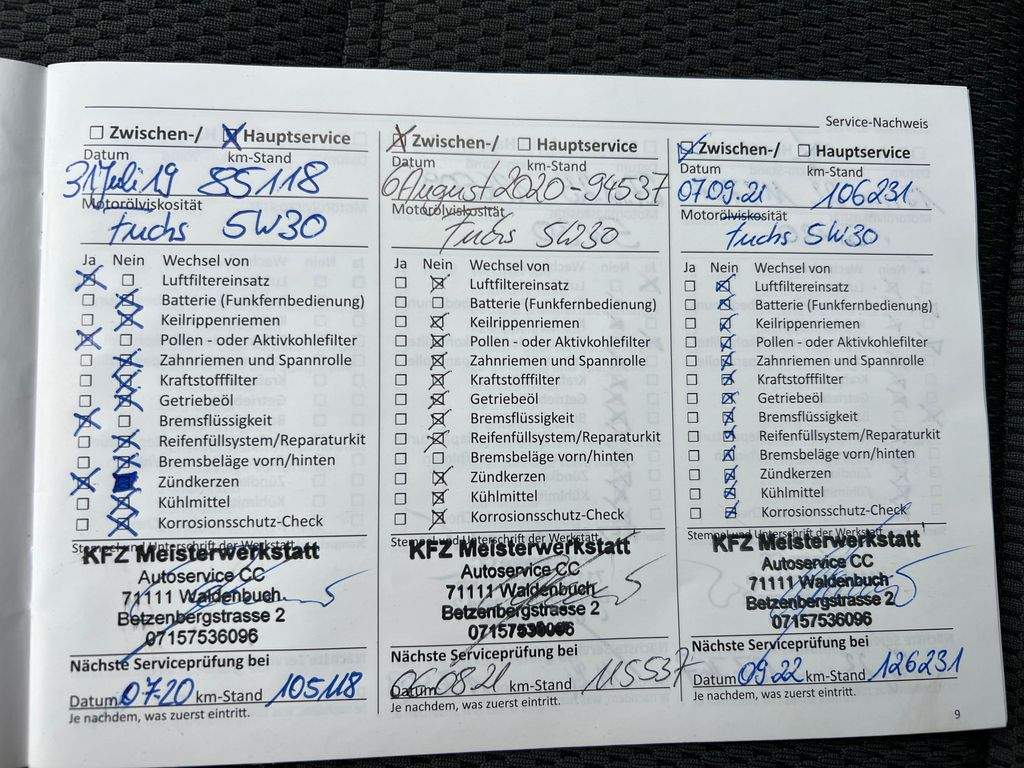 Service-Nachweis
☐ Zwischen-/ ☒ Hauptservice
Datum km-Stand
31 Juli 19 85118
Motorölviskosität
Fuchs 5W30
Ja Nein Wechsel von
☒ ☐ Luftfiltereinsatz
☐ ☒ Batterie (Funkfernbedienung)
☐ ☒ Keilrippenriemen
☒ ☐ Pollen - oder Aktivkohlefilter
☐ ☒ Zahnriemen und Spannrolle
☐ ☒ Kraftstofffilter
☐ ☒ Getriebeöl
☒ ☐ Bremsflüssigkeit
☐ ☒ Reifenfüllsystem/Reparaturkit
☐ ☒ Bremsbeläge vorn/hinten
☒ ☒ Zündkerzen
☐ ☒ Kühlmittel
☐ ☒ Korrosionsschutz-Check
Stempel und Unterschrift der Werkstatt
KFZ Meisterwerkstatt
Autoservice CC
71111 Waldenbuch
Betzenbergstrasse 2
07157536096
Nächste Serviceprüfung bei
Datum 07.20 km-Stand 105118
Je nachdem, was zuerst eintritt.
☒ Zwischen-/ ☐ Hauptservice
Datum km-Stand
6 August 2020 - 94537
Motorölviskosität
Fuchs 5W30
Ja Nein Wechsel von
☐ ☒ Luftfiltereinsatz
☐ ☐ Batterie (Funkfernbedienung)
☐ ☒ Keilrippenriemen
☐ ☒ Pollen - oder Aktivkohlefilter
☐ ☒ Zahnriemen und Spannrolle
☐ ☒ Kraftstofffilter
☐ ☒ Getriebeöl
☐ ☒ Bremsflüssigkeit
☐ ☒ Reifenfüllsystem/Reparaturkit
☐ ☐ Bremsbeläge vorn/hinten
☐ ☒ Zündkerzen
☐ ☒ Kühlmittel
☐ ☒ Korrosionsschutz-Check
Stempel und Unterschrift der Werkstatt
KFZ Meisterwerkstatt
Autoservice CC
71111 Waldenbuch
Betzenbergstrasse 2
07157536096
Nächste Serviceprüfung bei
Datum 06.08.21 km-Stand 115537
Je nachdem, was zuerst eintritt.
☒ Zwischen-/ ☐ Hauptservice
Datum km-Stand
07.09.21 106231
Motorölviskosität
Fuchs 5W30
Ja Nein Wechsel von
☐ ☒ Luftfiltereinsatz
☐ ☒ Batterie (Funkfernbedienung)
☐ ☒ Keilrippenriemen
☐ ☒ Pollen - oder Aktivkohlefilter
☐ ☒ Zahnriemen und Spannrolle
☐ ☒ Kraftstofffilter
☐ ☒ Getriebeöl
☐ ☒ Bremsflüssigkeit
☐ ☒ Reifenfüllsystem/Reparaturkit
☐ ☒ Bremsbeläge vorn/hinten
☐ ☒ Zündkerzen
☐ ☒ Kühlmittel
☐ ☒ Korrosionsschutz-Check
Stempel und Unterschrift der Werkstatt
KFZ Meisterwerkstatt
Autoservice CC
71111 Waldenbuch
Betzenbergstrasse 2
07157536096
Nächste Serviceprüfung bei
Datum 09.22 km-Stand 126231
Je nachdem, was zuerst eintritt.
9